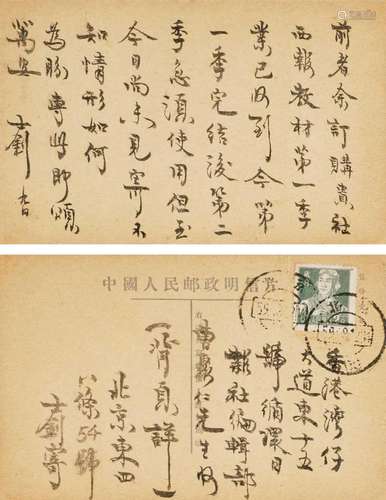 前者余訂購貴社
西報教材第一季
業已收到今第
一季完結後第二
季急須使用但至
今日尚未見寄不
知情形如何
為盼專此即頌
撰安 士釗
中國人民邮政明信片
香港灣仔
大道東十五
號循環日
報社編輯部
曹聚仁先生收
一濟頁詳
北京東四
八條54號
士釗寄